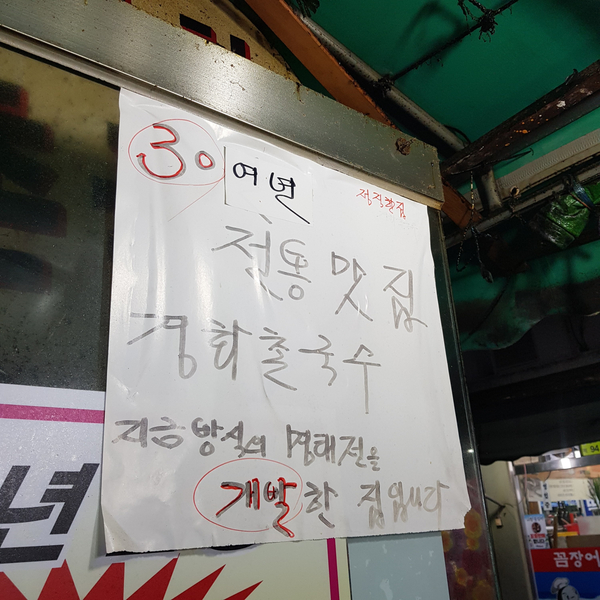 30여년
정직한집
전통맛집
경화촌국수
지금방식의 명태전을
개발한 집입니다
년
꼼장어
94